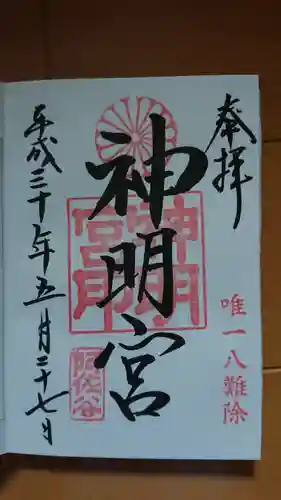 奉拝
唯一八難除
神明宮
神明宮
阿佐谷
平成三十年五月二十七日